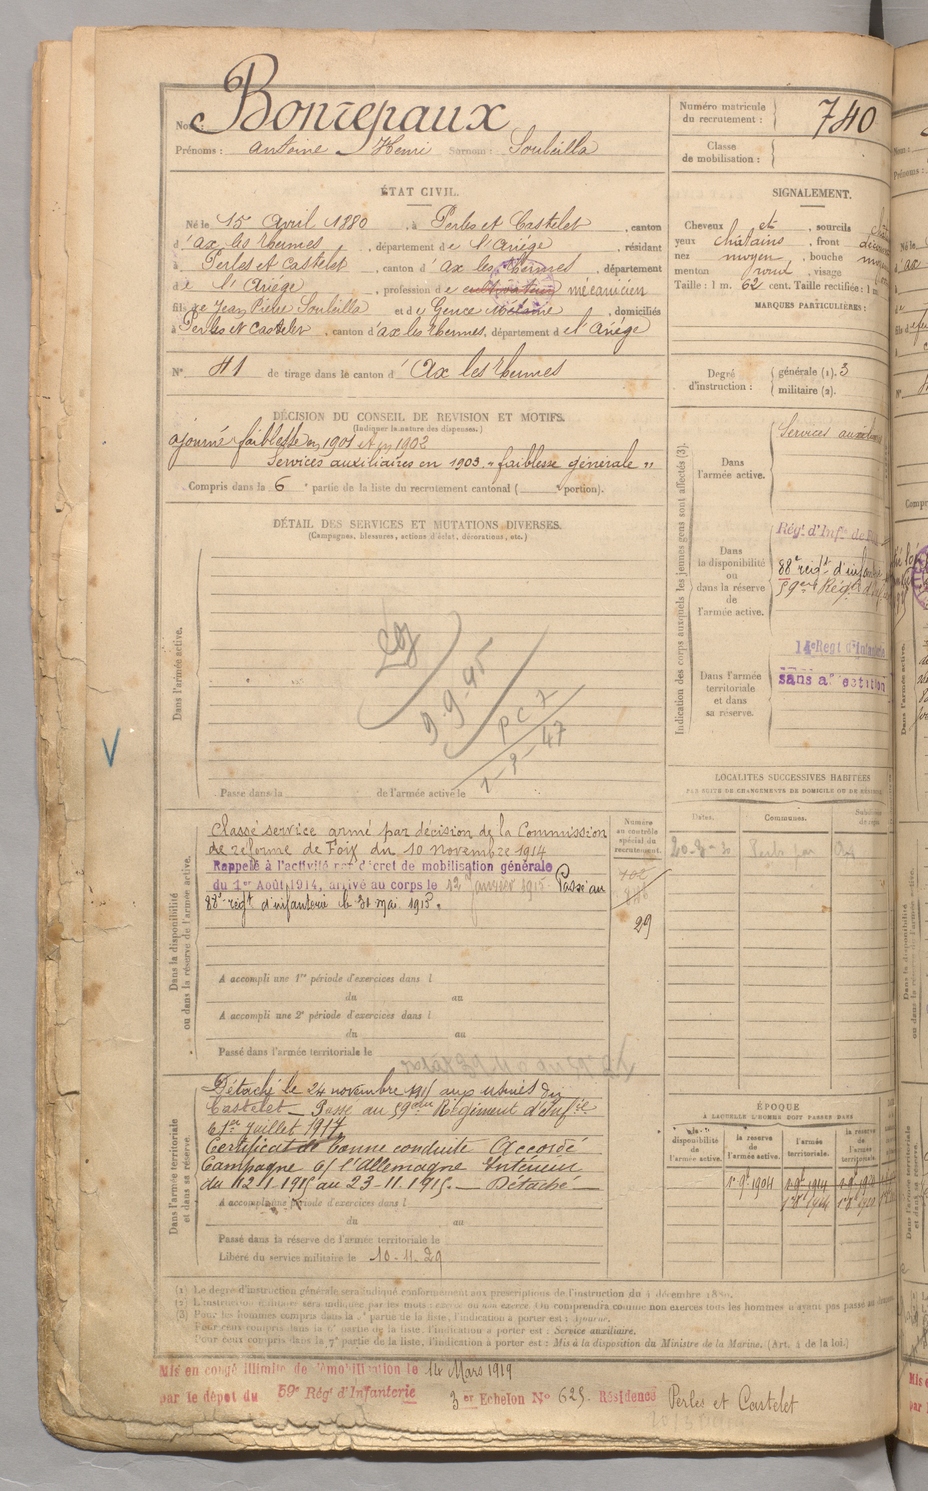 Nom : Bonrepaux
Prénoms : Antoine Henri Surnom : Soubeilla
Numéro matricule du recrutement : 740
Classe de mobilisation :
ÉTAT CIVIL.
Né le 15 Avril 1880, à Perles et Castelet, canton
d'ax les thermes, département de l'Ariège, résidant
à Perles et Castelet, canton d'ax les thermes, département
de l'Ariège, profession de cultivateur mécanicien
fils de Jean Pierre Soubeilla et de Gence, domiciliés
à Perles et Castelet, canton d'ax les thermes, département de l'Ariège
N° 41 de tirage dans le canton d'Ax les thermes
SIGNALEMENT.
Cheveux et, sourcils
yeux châtains, front
nez moyen, bouche
menton rond, visage
Taille : 1 m. 62 cent. Taille rectifiée : 1 m.
MARQUES PARTICULIÈRES :
Degré d'instruction : générale (1). 3
militaire (2).
DÉCISION DU CONSEIL DE REVISION ET MOTIFS.
(Indiquer la nature des dispenses.)
ajourné faiblesse en 1901 et en 1902
Services auxiliaires en 1903 "faiblesse générale"
Compris dans la 6e partie de la liste du recrutement cantonal ( portion).
DÉTAIL DES SERVICES ET MUTATIONS DIVERSES.
(Campagnes, blessures, actions d'éclat, décorations, etc.)
Dans l'armée active.
9-9-45
Passe dans la de l'armée active le
Indication des corps auxquels les jeunes gens sont affectés (3).
Dans l'armée active.
Services
Dans la disponibilité ou dans la réserve de l'armée active.
Rég. d'Inf. de
88e régt d'
59eme Régt d'
Dans l'armée territoriale et dans sa réserve.
14e Régt d'Infanterie
sans affectation
LOCALITÉS SUCCESSIVES HABITÉES
PAR SUITE DE CHANGEMENTS DE DOMICILE OU DE
Dates. Communes.
Dans la disponibilité ou dans la réserve de l'armée active.
Classé service armé par décision de la Commission
de réforme de Foix du 10 novembre 1914
Rappelé à l'activité par décret de mobilisation générale
du 1er Août 1914, arrivé au corps le 12 janvier 1915. Passé au
88e régt d'infanterie le 31 mai 1915.
Numéro au contrôle spécial du recrutement.
29
A accompli une 1re période d'exercices dans l
du au
A accompli une 2e période d'exercices dans l
du au
Passé dans l'armée territoriale le
Dans l'armée territoriale et dans sa réserve.
Détaché le 24 novembre 1915 aux usines du
Castelet – Passé au 59eme Régiment d'Infie
le 1er juillet 1917
Certificat de bonne conduite Accordé
Campagne c/ l'Allemagne Intérieur
du 12.1.1915 au 23-11.1915. – Détaché –
A accompli une période d'exercices dans l
du au
Passé dans la réserve de l'armée territoriale le
Libéré du service militaire le 10-11-29
ÉPOQUE
À LAQUELLE L'HOMME DOIT PASSER DANS
la disponibilité de l'armée active. la réserve de l'armée active. l'armée territoriale. la réserve de l'armée territoriale.
(1) Le degré d'instruction générale sera indiqué conformément aux prescriptions de l'instruction du 4 décembre 1889.
(3) Pour les hommes compris dans la 5e partie de la liste, l'indication à porter est : Ajourné.
Pour ceux compris dans la 6e partie de la liste, l'indication à porter est : Service auxiliaire.
Pour ceux compris dans la 7e partie de la liste, l'indication à porter est : Mis à la disposition du Ministre de la Marine. (Art. 4 de la loi.)
Mis en congé illimité de démobilisation le 14 Mars 1919
par le dépôt du 59e Rég' d'Infanterie 3er Echelon N° 625. Résidence Perles et Castelet